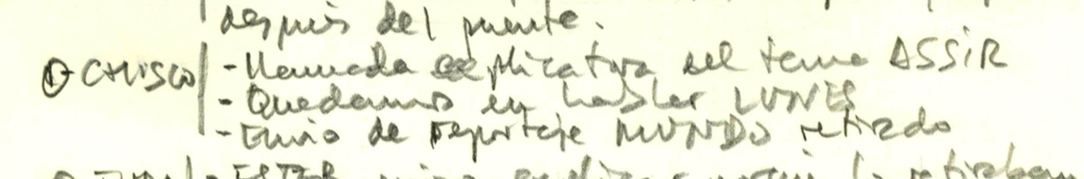 después del puente.
CALISCO - Llamada explicativa del tema ASSIR
- Quedamos en hablar LUNES
- Envio de reportaje MUNDO retirado
ESTER retiraban